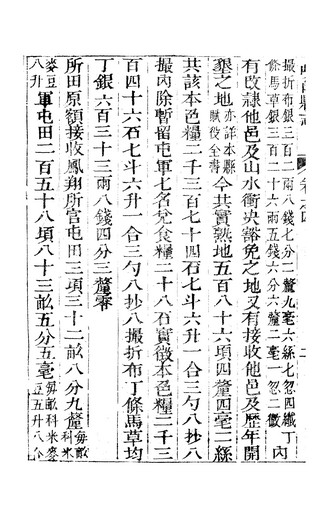 撮折布銀三百二兩八錢七分一釐九毫六絲七忽四纖丁內
餘馬草銀三百二十六兩五錢六分六釐二毫一忽二微
有改隷他邑及山水衝決豁免之地又有接收他邑及歷年開
墾之地亦詳本縣賦役全書今共實熟地五百八十六項四釐四毫二絲
共該本色糧二千三百七十四石七斗六升一合三勺八抄八
撮內除暫留屯軍七名免食糧二十八石實徵本色糧二千三
百四十六石七斗六升一合三勺八抄八撮折布丁條馬草均
丁銀六百三十三兩八錢四分三釐零
所田原額接收鳳翔所官屯田三項三十二畝八分九釐每畝科米
麥豆八升軍屯田二百五十八項八十三畝五分五毫每畝科米麥豆五升八合